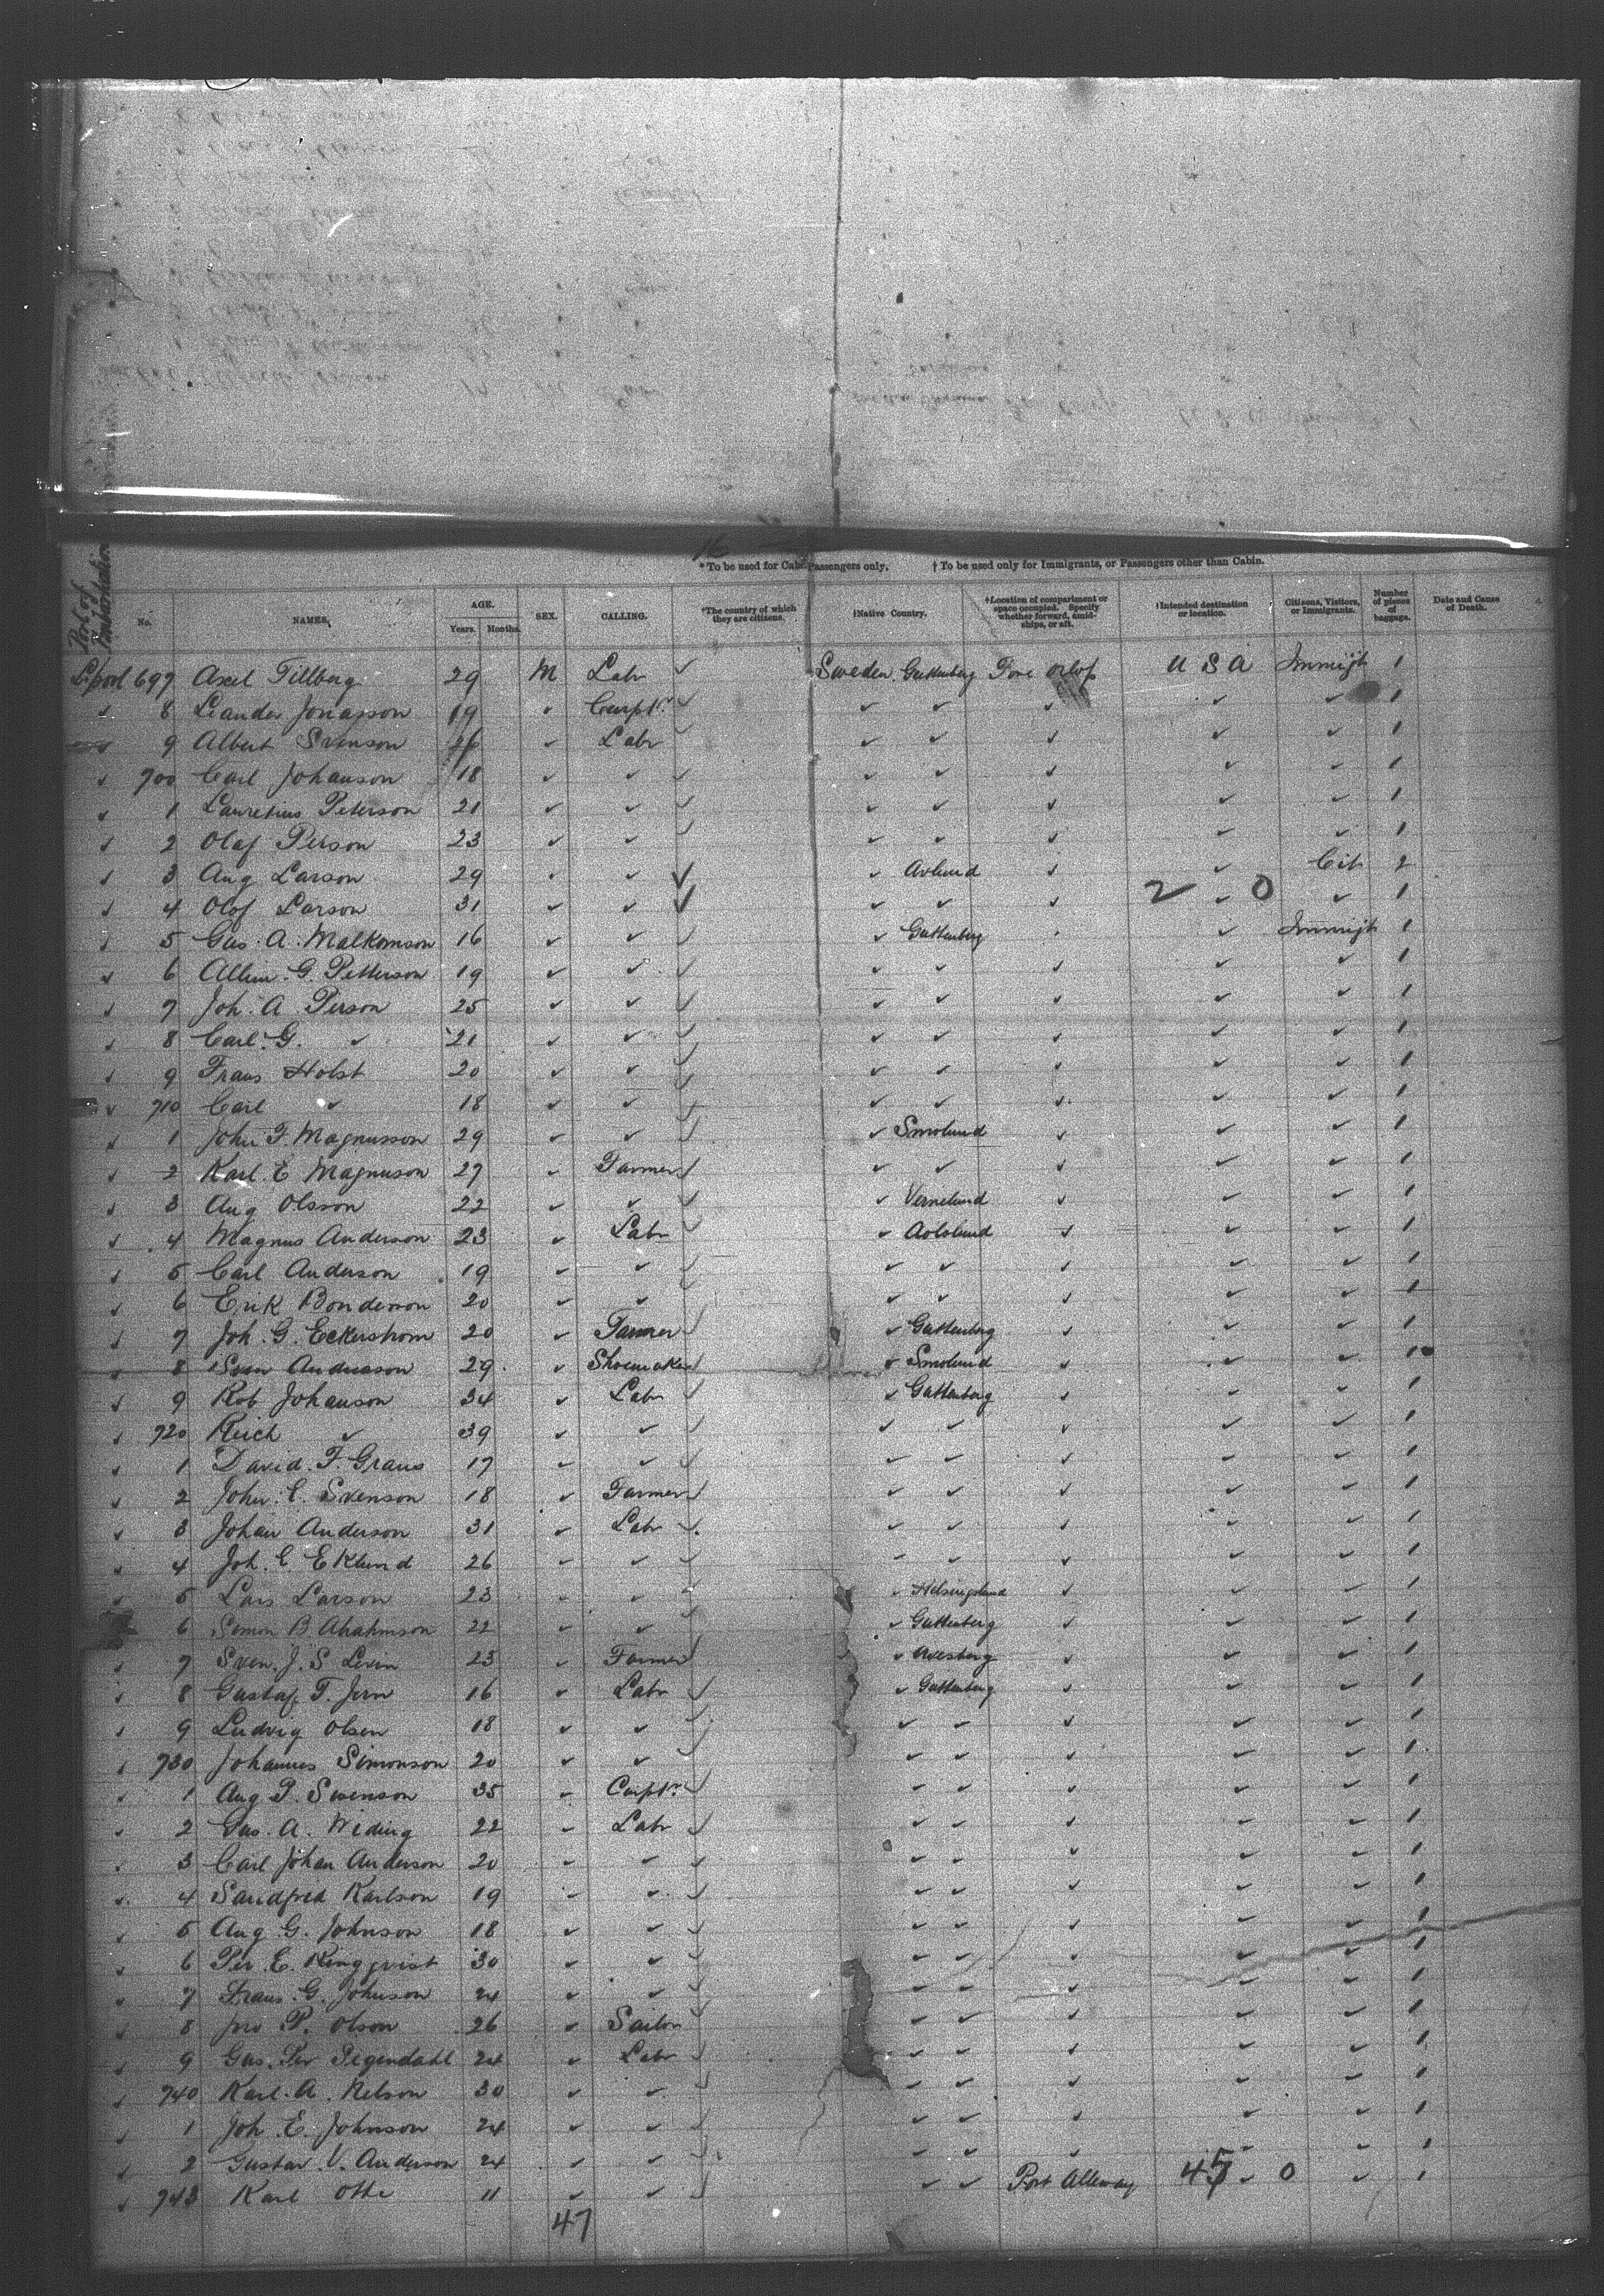 * To be used for Cabin Passengers only. † To be used only for Immigrants, or Passengers other than Cabin.
Port of Embarkation No. NAMES, AGE. Years. Months. SEX. CALLING. *The country of which they are citizens. †Native Country. †Location of compartment or space occupied. Specify whether forward, amidships, or aft. †Intended destination or location. Citizens, Visitors, or Immigrants. Number of pieces of baggage. Date and Cause of Death.
L'pool 697 Axel Tillberg 29 M Labr ✓ Sweden Guttenberg Fore Orlop U S A Immigt 1
✓ 8 Leander Jonasson 19 ✓ Carptr ✓ ✓ ✓ ✓ ✓ ✓ 1
✓ 9 Albert Svenson 26 ✓ Labr ✓ ✓ ✓ ✓ ✓ 1
✓ 700 Carl Johanson 18 ✓ ✓ ✓ ✓ ✓ ✓ ✓ ✓ 1
✓ 1 Lauretius Peterson 21 ✓ ✓ ✓ ✓ ✓ ✓ ✓ ✓ 1
✓ 2 Olaf Person 23 ✓ ✓ ✓ ✓ ✓ ✓ ✓ ✓ 1
✓ 3 Aug Larson 29 ✓ ✓ ✓ ✓ Avlund ✓ ✓ Cit 2
✓ 4 Olof Larson 31 ✓ ✓ ✓ ✓ ✓ ✓ 2 ✓ 0 ✓ 1
✓ 5 Gus. A. Malkomson 16 ✓ ✓ ✓ ✓ Guttenberg ✓ ✓ Immigt 1
✓ 6 Albin G. Petterson 19 ✓ ✓ ✓ ✓ ✓ ✓ ✓ ✓ 1
✓ 7 Joh. A Person 25 ✓ ✓ ✓ ✓ ✓ ✓ ✓ ✓ 1
✓ 8 Carl. G. ✓ 21 ✓ ✓ ✓ ✓ ✓ ✓ ✓ ✓ 1
✓ 9 Frans Holst 20 ✓ ✓ ✓ ✓ ✓ ✓ ✓ ✓ 1
✓ 710 Carl ✓ 18 ✓ ✓ ✓ ✓ ✓ ✓ ✓ ✓ 1
✓ 1 John F. Magnusson 29 ✓ ✓ ✓ ✓ Smolund ✓ ✓ ✓ 1
✓ 2 Karl. E Magnuson 27 ✓ Farmer ✓ ✓ ✓ ✓ ✓ ✓ 1
✓ 3 Aug Olsson 22 ✓ ✓ ✓ ✓ Vernelund ✓ ✓ ✓ 1
✓ 4 Magnus Anderson 23 ✓ Labr ✓ ✓ Aolslund ✓ ✓ ✓ 1
✓ 5 Carl Anderson 19 ✓ ✓ ✓ ✓ ✓ ✓ ✓ ✓ 1
✓ 6 Erik Bonderson 20 ✓ ✓ ✓ ✓ ✓ ✓ ✓ ✓ 1
✓ 7 Joh. G. Eckerstrom 20 ✓ Farmer ✓ ✓ Guttenberg ✓ ✓ ✓ 1
✓ 8 Sven Anderason 29 ✓ Shoemaker ✓ ✓ Smolund ✓ ✓ ✓ 1
✓ 9 Rob Johanson 34 ✓ Labr ✓ ✓ Guttenberg ✓ ✓ ✓ 1
✓ 720 Reich ✓ 39 ✓ ✓ ✓ ✓ ✓ ✓ ✓ ✓ 1
✓ 1 David. F. Graus 17 ✓ ✓ ✓ ✓ ✓ ✓ ✓ ✓ 1
✓ 2 John. E. Svenson 18 ✓ Farmer ✓ ✓ ✓ ✓ ✓ ✓ 1
✓ 3 Johan Anderson 31 ✓ Labr ✓ ✓ ✓ ✓ ✓ ✓ 1
✓ 4 Joh. E Eklund 26 ✓ ✓ ✓ ✓ ✓ ✓ ✓ ✓ 1
✓ 5 Lars Larson 23 ✓ ✓ ✓ ✓ Helsingslund ✓ ✓ ✓ 1
6 Simon B Ahahmson 22 ✓ ✓ ✓ ✓ Guttenberg ✓ ✓ ✓ 1
✓ 7 Sven. J. S Levin 23 ✓ Farmer ✓ Avesberg ✓ ✓ ✓ 1
✓ 8 Gustaf T. Jern 16 ✓ Labr ✓ ✓ Guttenberg ✓ ✓ ✓ 1
✓ 9 Ludvig Olsen 18 ✓ ✓ ✓ ✓ ✓ ✓ ✓ ✓ 1
✓ 730 Johannes Simonson 20 ✓ ✓ ✓ ✓ ✓ ✓ ✓ ✓ 1
✓ 1 Aug P. Swenson 35 ✓ Carptr ✓ ✓ ✓ ✓ ✓ ✓ 1
✓ 2 Gus. A. Widing 22 ✓ Labr ✓ ✓ ✓ ✓ ✓ ✓ 1
✓ 3 Carl Johan Anderson 20 ✓ ✓ ✓ ✓ ✓ ✓ ✓ ✓ 1
✓ 4 Sandfred Karlson 19 ✓ ✓ ✓ ✓ ✓ ✓ ✓ ✓ 1
✓ 5 Aug G. Johnson 18 ✓ ✓ ✓ ✓ ✓ ✓ ✓ ✓ 1
✓ 6 Per. E. Ringqvist 30 ✓ ✓ ✓ ✓ ✓ ✓ ✓ ✓ 1
✓ 7 Frans. G. Johnson 24 ✓ ✓ ✓ ✓ ✓ ✓ ✓ ✓ 1
✓ 8 Jno P. Olson 26 ✓ Sailor ✓ ✓ ✓ ✓ ✓ ✓ 1
✓ 9 Gus. Per Pegendahl 24 ✓ Labr ✓ ✓ ✓ ✓ ✓ ✓ 1
✓ 740 Karl. A. Nelson 30 ✓ ✓ ✓ ✓ ✓ ✓ ✓ ✓ 1
✓ 1 Joh. E. Johnson 24 ✓ ✓ ✓ ✓ ✓ ✓ ✓ ✓ 1
✓ 2 Gustav. V. Anderson 24 ✓ ✓ ✓ ✓ ✓ ✓ ✓ ✓ 1
✓ 743 Karl Othe 11 ✓ ✓ ✓ ✓ ✓ Port Alleway 45 ✓ 0 ✓ 1
47